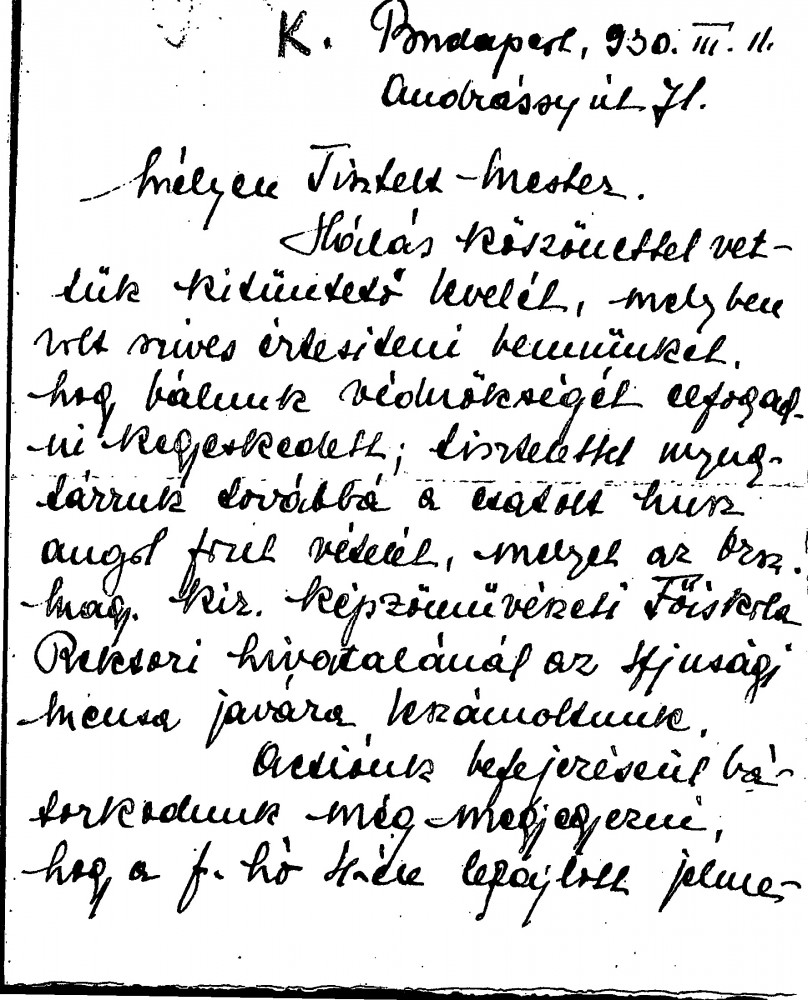 K. Budapest, 930. III. 11.
Andrássy út 71.
Mélyen Tisztelt Mester.
Hálás köszönettel vet-
tük kitüntető levelét, melyben
volt szives értesiteni bennünket,
hogy bálunk védnökségét elfogad-
ni kegyeskedett; tisztelettel nyug-
tázzuk továbbá a csatolt husz
angol font vételét, melyet az Orsz.
Mag. Kir. Képzőművészeti Főiskola
Rektori hivatalánál az Ifjusági
Mensa javára leszámoltunk.
Actiónk befejezéseül bá-
torkodunk még megjegyezni,
hogy a f. hó 4-én lezajlott jelme-